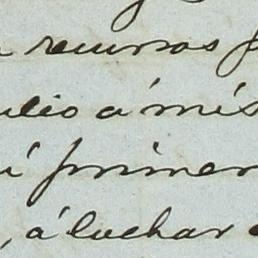 recursos
á mis
primer
, á luchar